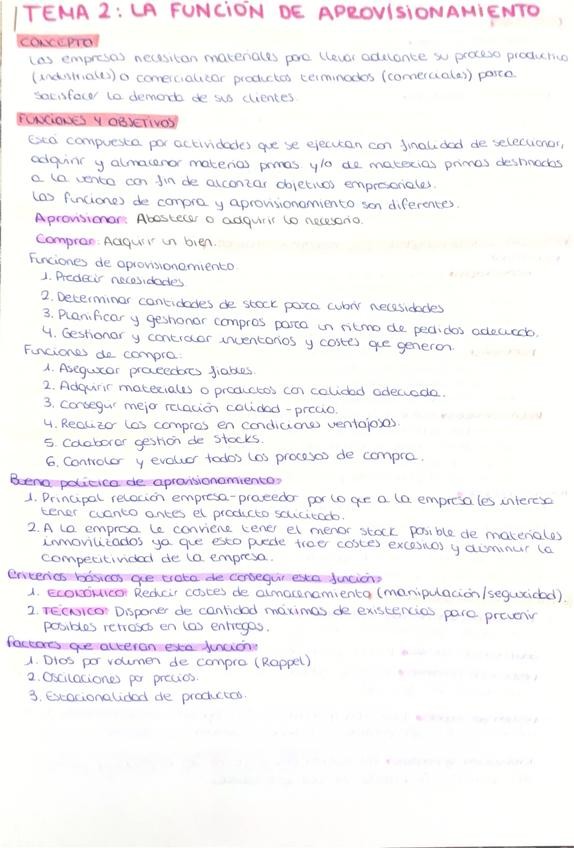 TEMA 2: LA FUNCIÓN DE APROVISIONAMIENTO
CONCEPTO
Las empresas necesitan materiales para llevar adelante su proceso productivo
(industriales) o comercializar productos terminados (comerciales) para
satisfacer la demanda de sus clientes.
FUNCIONES Y OBJETIVOS
Está compuesta por actividades que se ejecutan con finalidad de seleccionar,
adquirir y almacenar materias primas y/o de materias primas destinadas
a la venta con fin de alcanzar objetivos empresariales.
Las funciones de compra y aprovisionamiento son diferentes.
Aprovisionar: Abastecer o adquirir lo necesario.
Comprar: Adquirir un bien.
Funciones de aprovisionamiento
1. Predecir necesidades
2. Determinar cantidades de stock para cubrir necesidades
3. Planificar y gestionar compras para un ritmo de pedidos adecuado.
4. Gestionar y controlar inventarios y costes que generan.
Funciones de compra:
1. Asegurar proveedores fiables.
2. Adquirir materiales o productos con calidad adecuada.
3. Conseguir mejor relación calidad-precio.
4. Realizar las compras en condiciones ventajosas.
5. Colaborar gestión de stocks.
6. Controlar y evaluar todos los procesos de compra.
Buena política de aprovisionamiento:
1. Principal relación empresa-proveedor por lo que a la empresa les interesa
tener cuanto antes el producto solicitado.
2. A la empresa le conviene tener el menor stock posible de materiales
inmovilizados ya que esto puede traer costes excesivos y disminuir la
competitividad de la empresa.
Criterios básicos que trata de conseguir esta función:
1. ECONÓMICO: Reducir costes de almacenamiento (manipulación/seguridad).
2. TÉCNICO: Disponer de cantidad máximas de existencias para prevenir
posibles retrasos en las entregas.
Factores que alteran esta función:
1. Dtos por volumen de compra (Rappel)
2. Oscilaciones por precios.
3. Estacionalidad de productos.